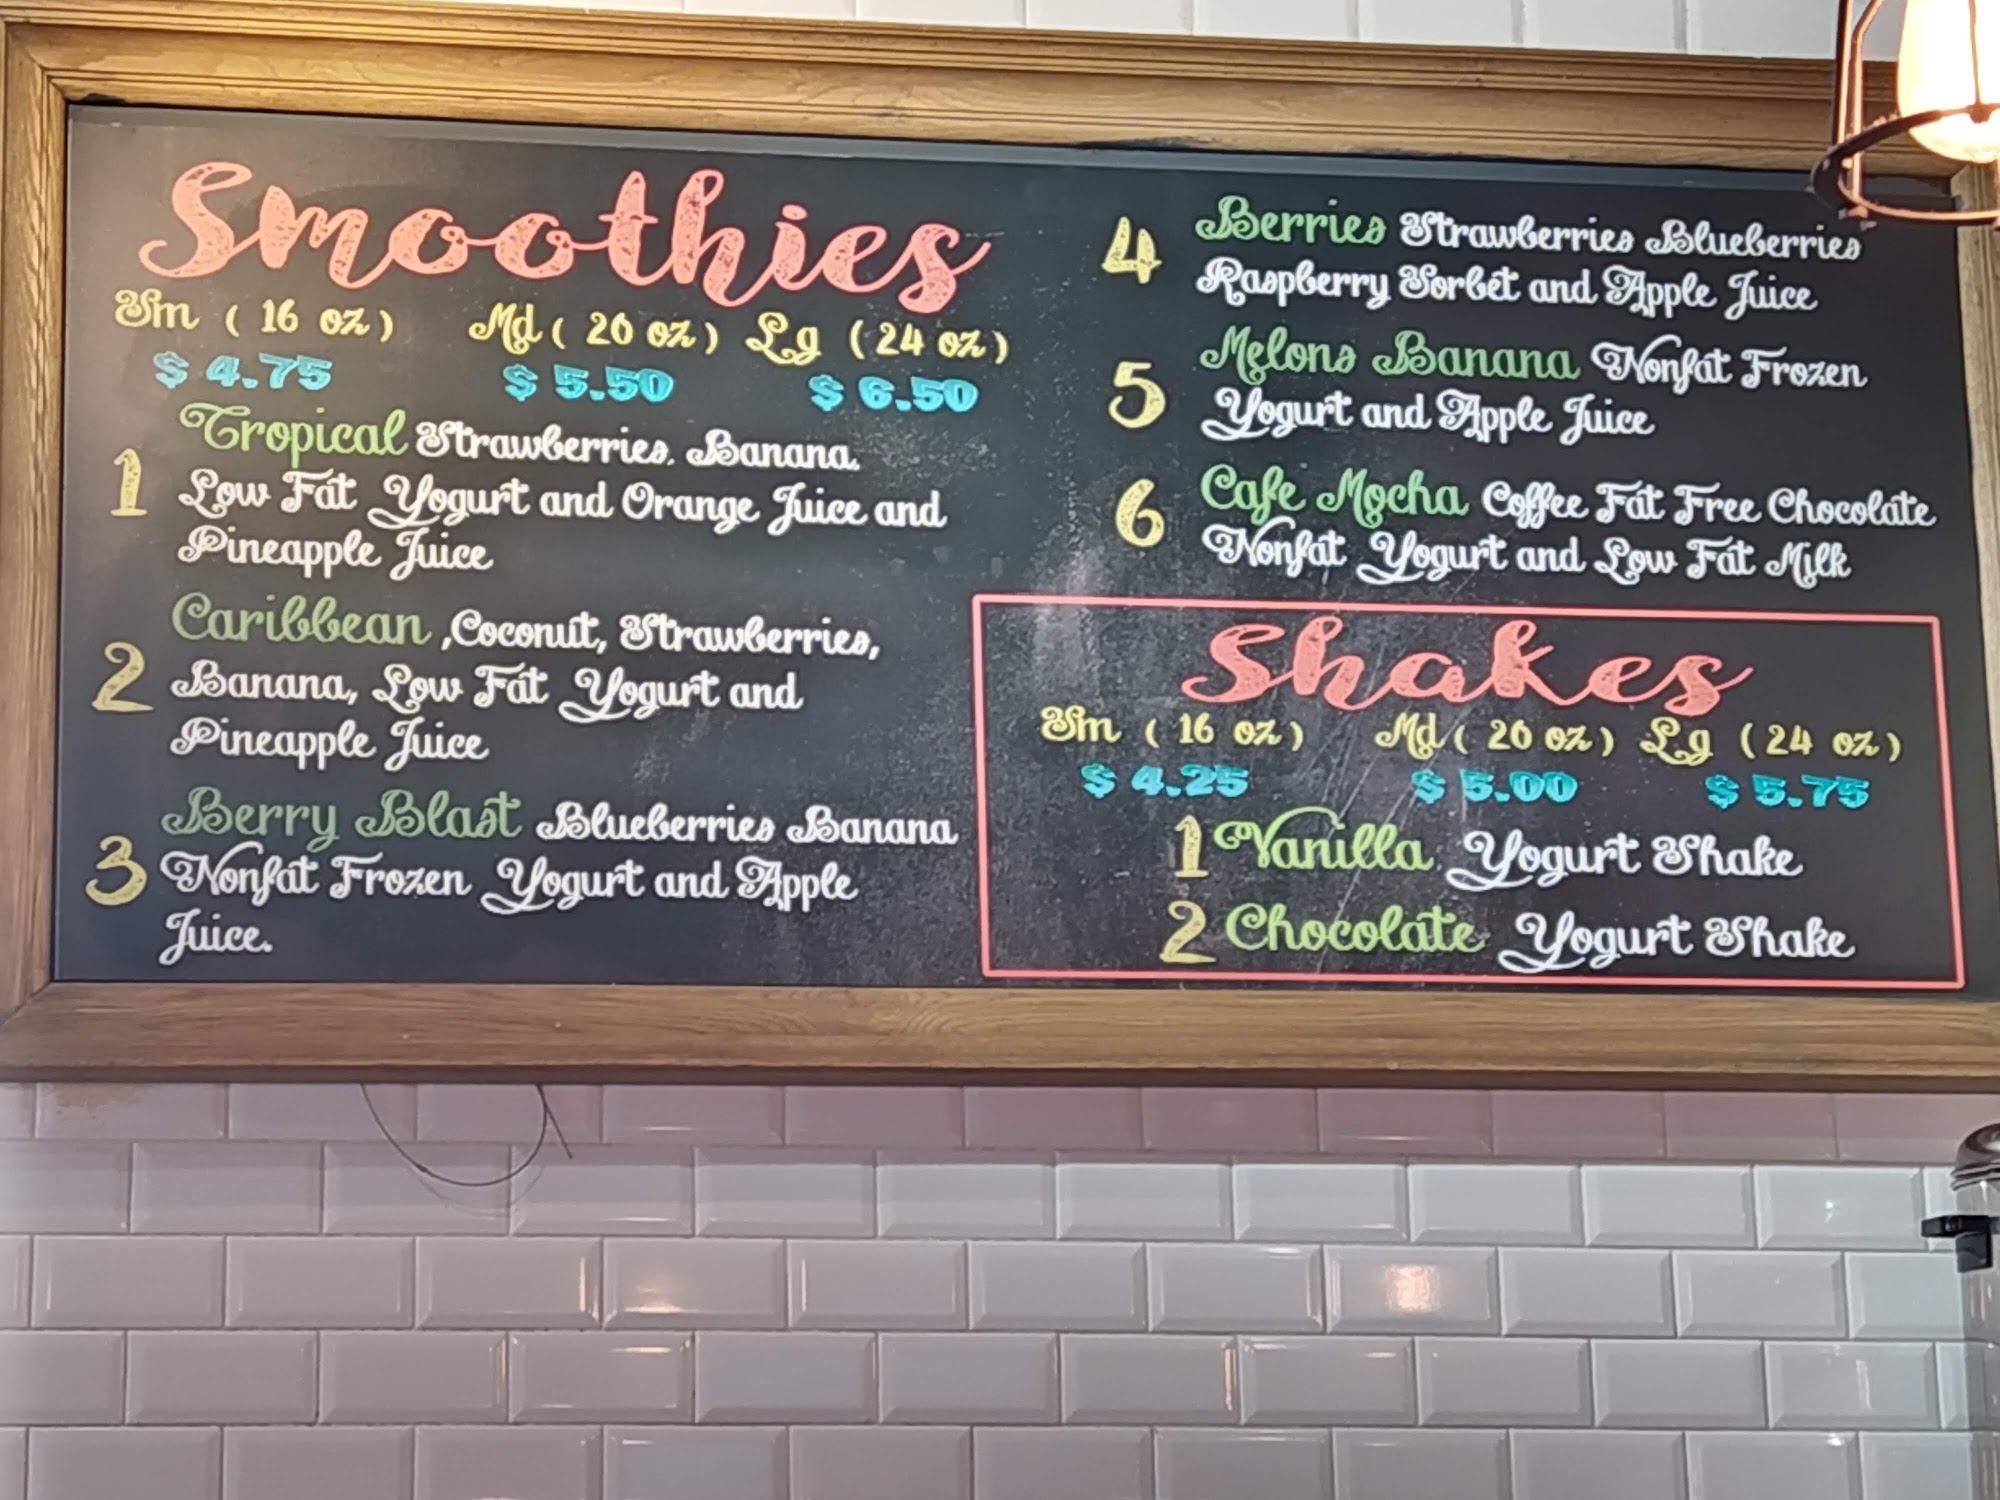 Smoothies
Sm ( 16 oz ) Md ( 20 oz ) Lg ( 24 oz )
$ 4.75 $ 5.50 $ 6.50
1 Tropical Strawberries, Banana,
Low Fat Yogurt and Orange Juice and
Pineapple Juice
2 Caribbean ,Coconut, Strawberries,
Banana, Low Fat Yogurt and
Pineapple Juice
3 Berry Blast Blueberries Banana
Nonfat Frozen Yogurt and Apple
Juice.
4 Berries Strawberries Blueberries
Raspberry Sorbet and Apple Juice
5 Melons Banana Nonfat Frozen
Yogurt and Apple Juice
6 Cafe Mocha Coffee Fat Free Chocolate
Nonfat Yogurt and Low Fat Milk
Shakes
Sm ( 16 oz ) Md ( 20 oz ) Lg ( 24 oz )
$ 4.25 $ 5.00 $ 5.75
1 Vanilla Yogurt Shake
2 Chocolate Yogurt Shake